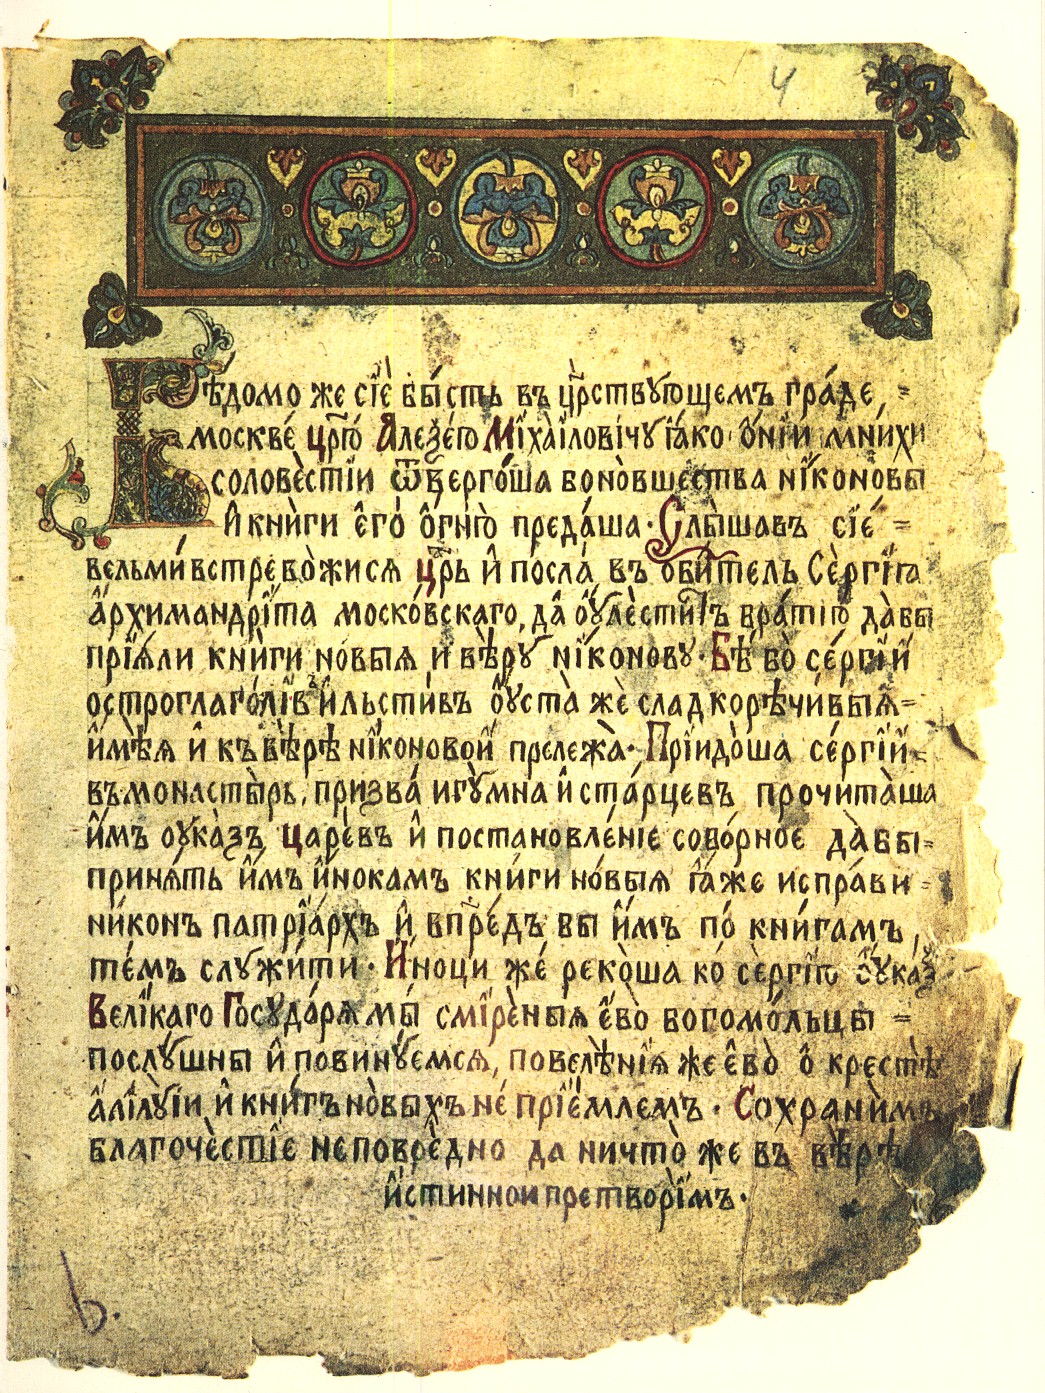 4
Вѣдомо же сїѐ бы́сть въ цр҃ствꙋющемъ гра́де, =
москве́ цр҃ю́ Алеѯе́ю Мїха̀iловiчꙋ ꙗко ѻ́нїи мнихи
соловѐстїи ѿверго́ша бо но̀вшества нїконо̀вы
и҆ кнѝги є҆го̀ ѻ҆гню̀ преда́ша · Слы́шавъ сїѐ =
вельми́ встрево̀жися цр҃ь и҆ посла̀ въ ѻби́тель Сѐргїѧ
а҆рхимандрі́та моско́вскаго, да̀ оу҆лести́тъ бра́тїю да̀бы
прїѧ́ли кнѝги но́выѧ и вѣ́рꙋ нїко́новꙋ · Бѣ̀ бо̀ се́ргїй
остроглаго́лївъ и҆ льсти́въ ѹ҆ста̀ жѐ сладкорѣчи́выѧ =
и҆мѣ́ѧ и҆ къ вѣ̀рѣ нїконовой прележа̀ · Прїидо̀ша се́ргїй =
въ монасты̀рь, призва́ игꙋ́мна и҆ ста́рцевъ прочита̀ша
и҆мъ оука̀зъ царе́въ и҆ постановле́нїе собо́рное да̀бы =
принѧ́ть и҆мъ и҆нокамъ кни́ги но́выѧ ꙗ҆̀же испра́ви =
ни́конъ патрїа́рхъ и҆ впре́дъ бы и҆мъ по́ кни́гамъ,
те́мъ слꙋжи́ти · И҆ноци же́ реко̀ша ко̀ сѐргїю ѹка́з
Вели́каго Госꙋда́рѧ мы̀ смїре́ныѧ є҆во̀ богомо́льцы =
послꙋ́шны и҆ повинꙋ́емсѧ, повелѣ́нїѧ же є҆во̀ ѻ҆ крестѣ̀
а҆лїлꙋ́їи, и҆ кни́гъ но̀выхъ не́ прїе́млемъ · Сохрани̇̀мъ
благоче̇̀стїе неповре́дно да ничто̀ же въ вѣ́рѣ
и҆стинной претвори́мъ ·
6.